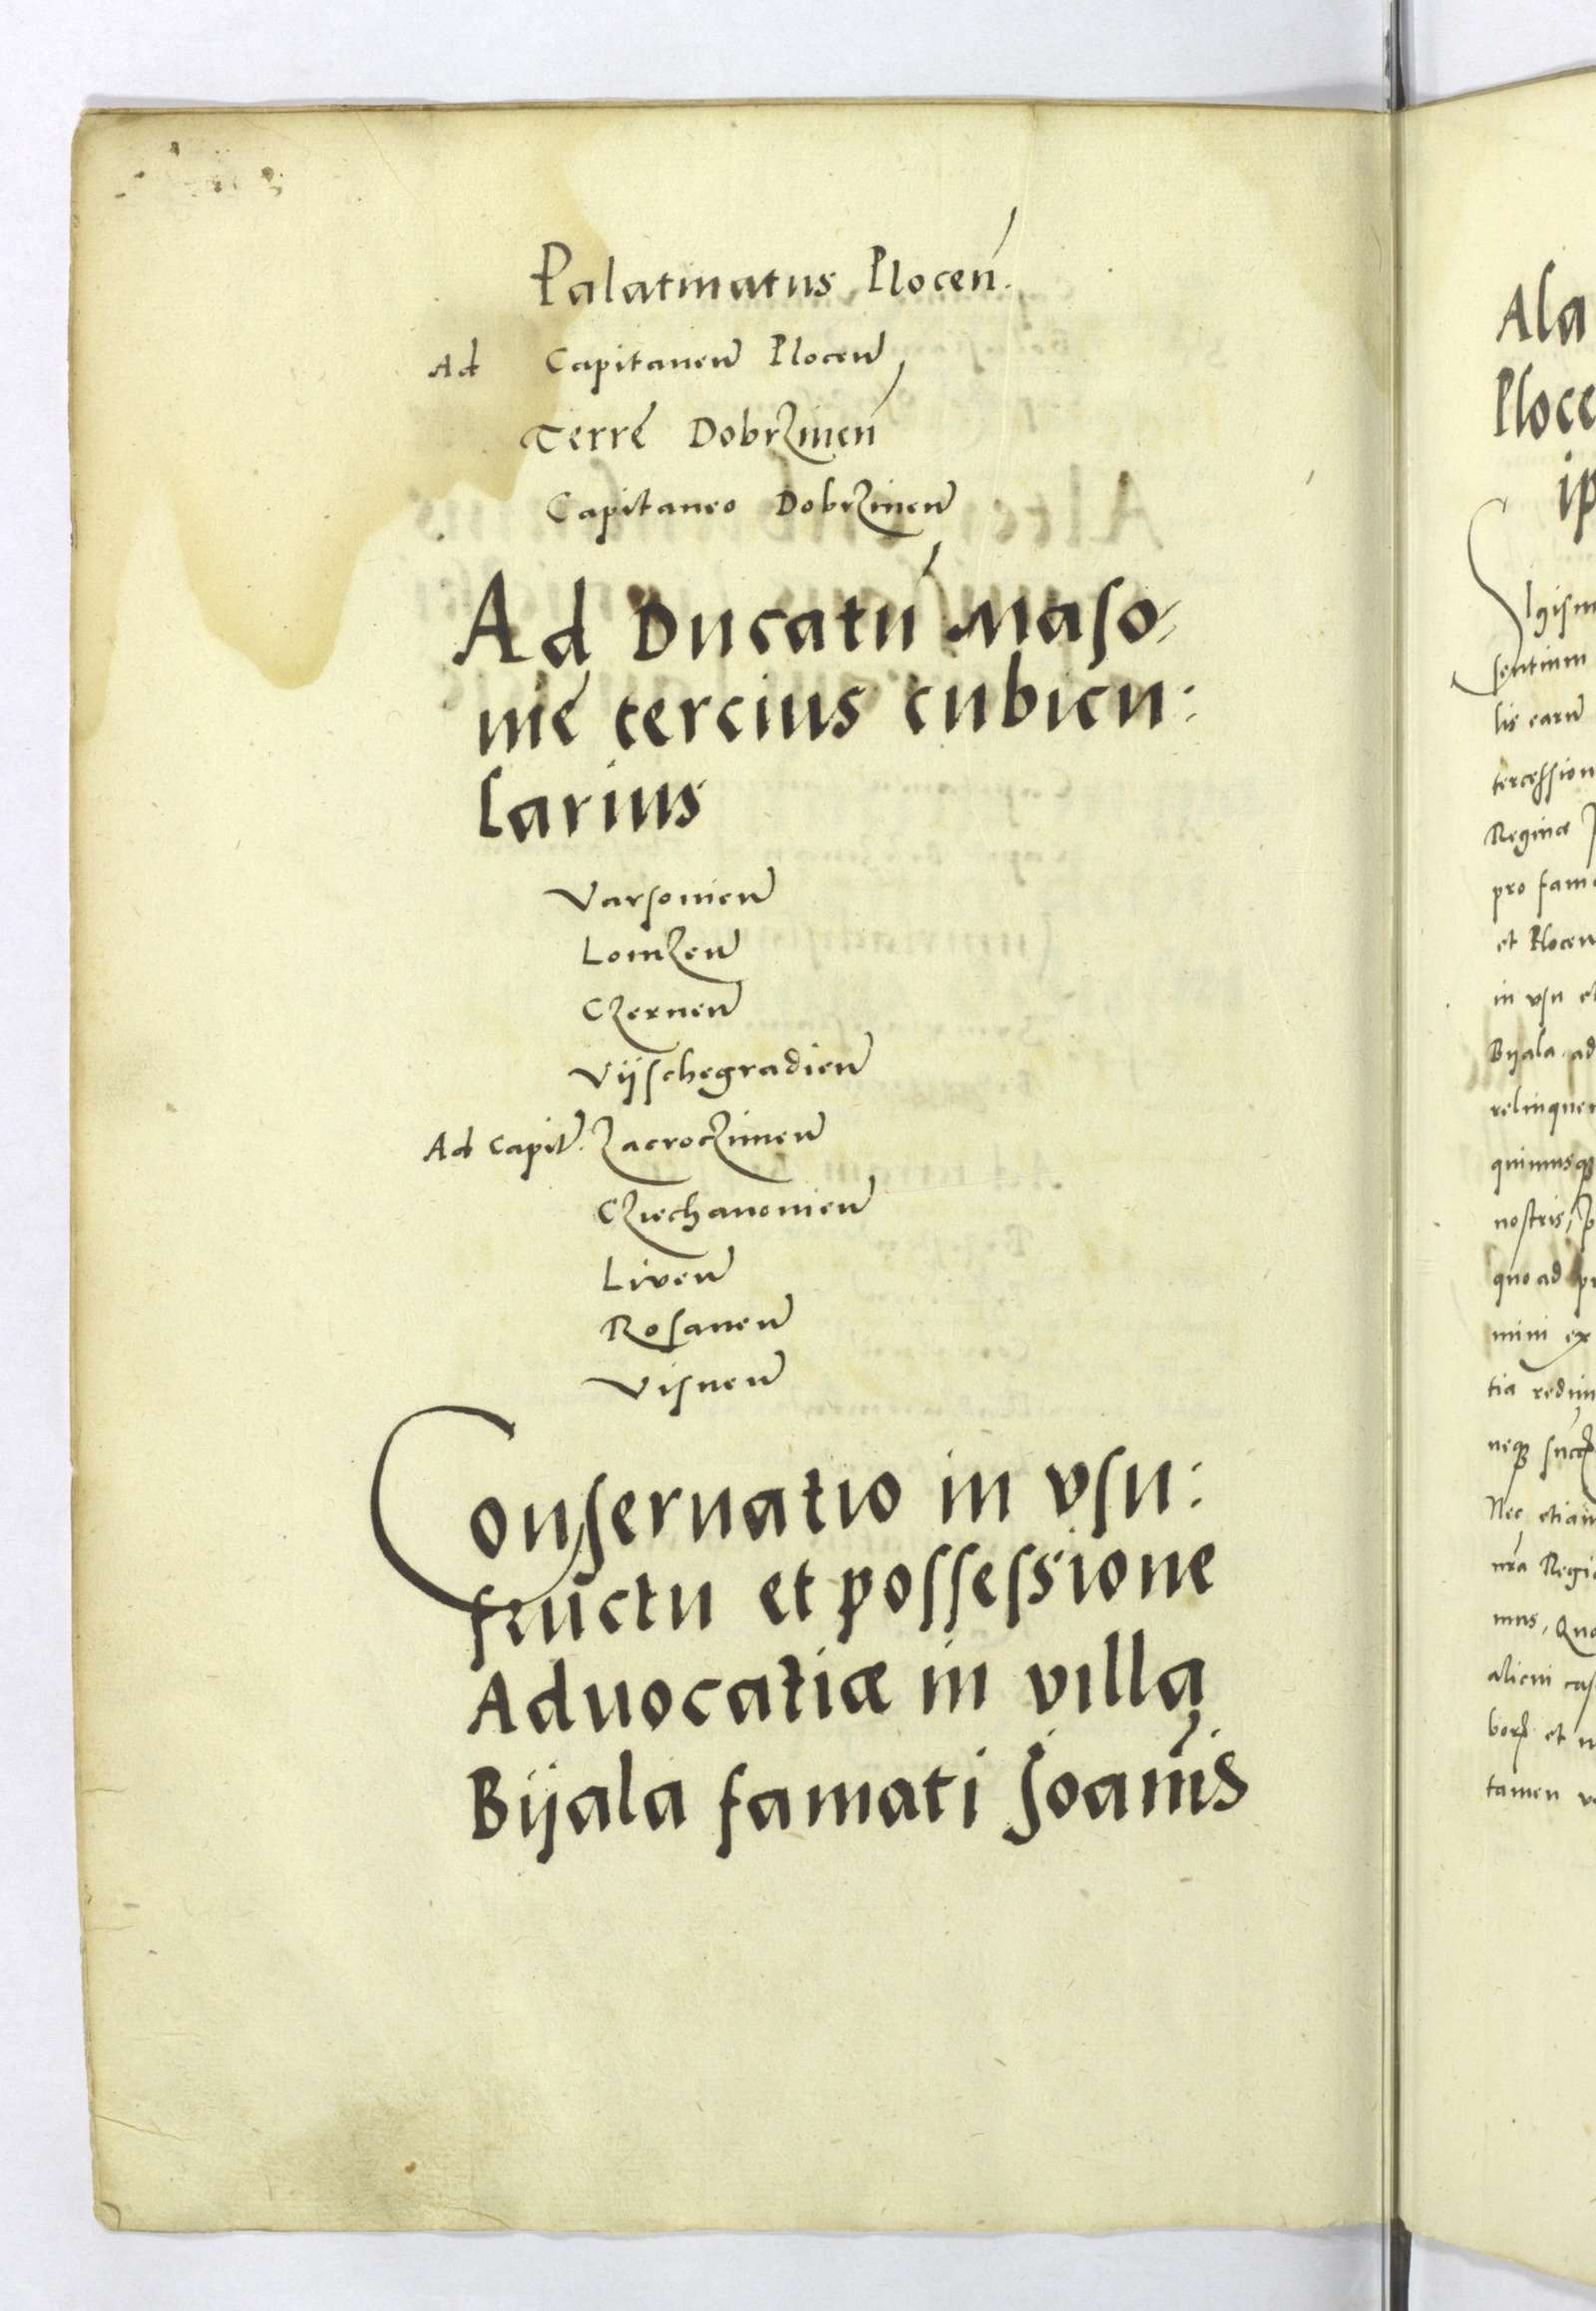 Palatinatus Plocen̄.
Ad Capitaneū Plocen̄
Terrē Dobrzinen̄
Capitaneo Dobrzinen̄
Ad Ducatū Maso-
niē tercius cubicu:
larius
Varsovien̄
Lomzen̄
Czernen̄
Vijschegradien̄
Ad Capit̄. Zacroczimen̄
Cziechanovien̄
Liven̄
Rosanen̄
Visnen̄
Conseruatio in vsu:
fructu et possessione
Aduocatiæ in villa
Bijala famati Joan̄is
Ala
Ploce
ip
Sigism
sentium
lis earū
tercession
Reginæ
pro fam
et Plocen
in vsu et
Bijala ad
relinquen
nostris, p
quo ad pr
mini ex
tia redim
Nec etiam
nr̄a Regi
mus, Quo
alicui cas
tamen v